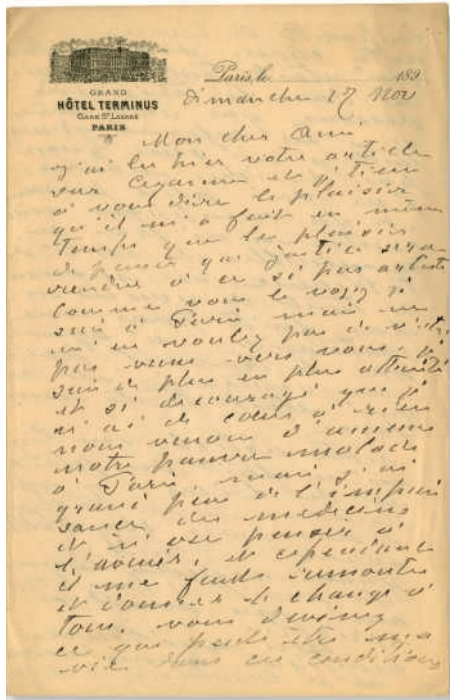 GRAND
HÔTEL TERMINUS
GARE St LAZARE
PARIS
Paris, le 189
Dimanche 17 Nov
Mon cher Ami
j'ai lu hier votre article
sur Cezanne et je tiens
à vous dire le plaisir
qu'il m'a fait en même
temps que le plaisir
de penser que justice sera
rendue à ce si pur artiste
Comme vous le voyez je
suis à Paris mais ne
m'en voulez pas de n'être
pas venu vers vous, je
suis de plus en plus attristé
et si découragé que je
n'ai de coeur à rien
nous venons d'amener
notre pauvre malade
à Paris, mais j'ai
grand peur de l'impuis
sance des medecins
et n'ose penser à
l'avenir, et cependant
il me faut remonter
et donner le change à
tous, vous devinez
ce que peut être ma
vie dans ces conditions